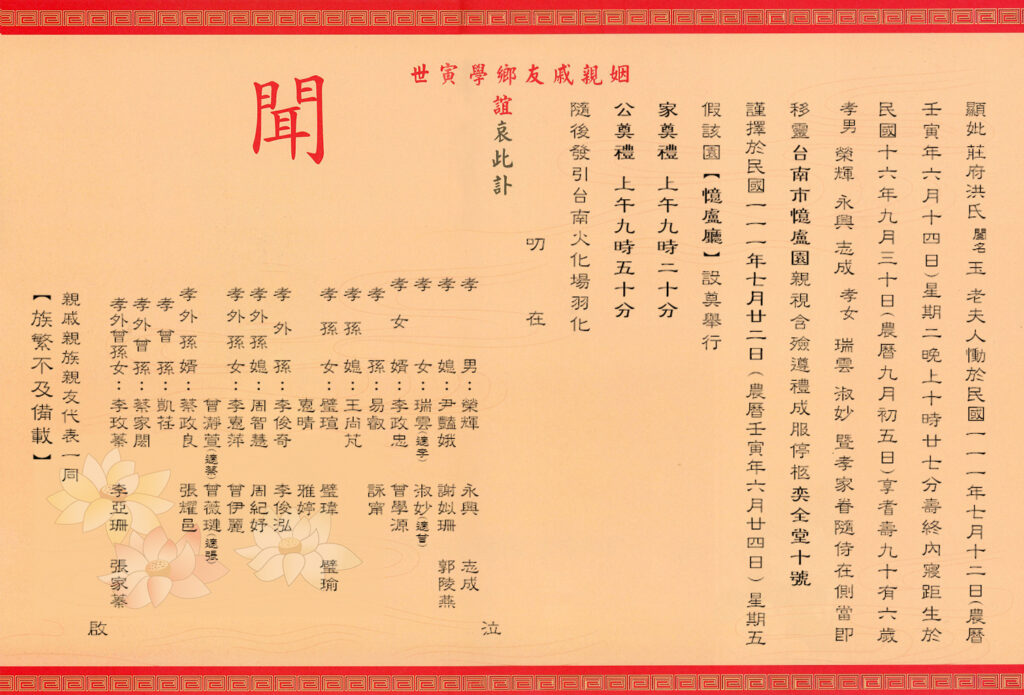 顯妣莊府洪氏閨名玉 老夫人慟於民國一一一年七月十二日(農曆
壬寅年六月十四日)星期二晚上十時廿七分壽終內寢距生於
民國十六年九月三十日(農曆九月初五日)享耆壽九十有六歲
孝男 榮輝 永興 志成 孝女 瑞雲 淑妙 暨孝家眷隨侍在側當即
移靈台南市憶廬園親視含殮遵禮成服停柩奕全堂十號
謹擇於民國一一一年七月廿二日(農曆壬寅年六月廿四日)星期五
假該園【憶廬廳】設奠舉行
家奠禮 上午九時二十分
公奠禮 上午九時五十分
隨後發引台南火化場羽化
叨在
姻親戚友鄉學寅世
誼哀此訃
聞
孝男:榮輝 永興 志成
孝媳:尹豔娥 謝姒珊 郭陵燕
孝女:瑞雲(適李) 淑妙(適曾)
孝女婿:李政忠 曾學源
孝孫:易叡 詠甯
孝孫媳:王尚芃
孝孫女:璧瑄 璧瑋 璧瑜
惠晴 雅婷
孝外孫:李俊奇 李俊泓
孝外孫媳:周智慧 周紀妤
孝外孫女:李惠萍 曾伊麗
曾瀞萱(適蔡) 曾薇璉(適張)
孝外孫婿:蔡政良 張耀邑
孝曾孫:凱荏
孝外曾孫:蔡家閎
孝外曾孫女:李玫蓁 李亞珊 張家蓁
親戚親族親友代表一同
【族繁不及備載】
泣
啟